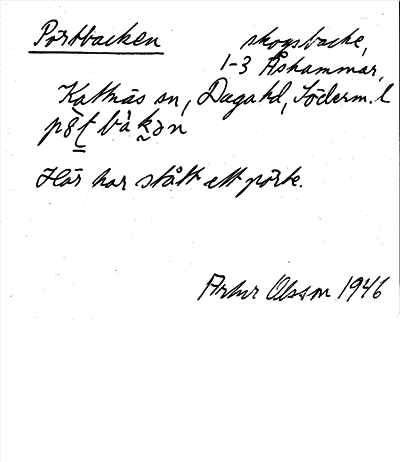 Portbacken skogsbacke,
1-3 Åshammar,
Kattnäs sn, Daga hd, Söderm. l
Här har stått ett pörte.
Artur Olsson 1946